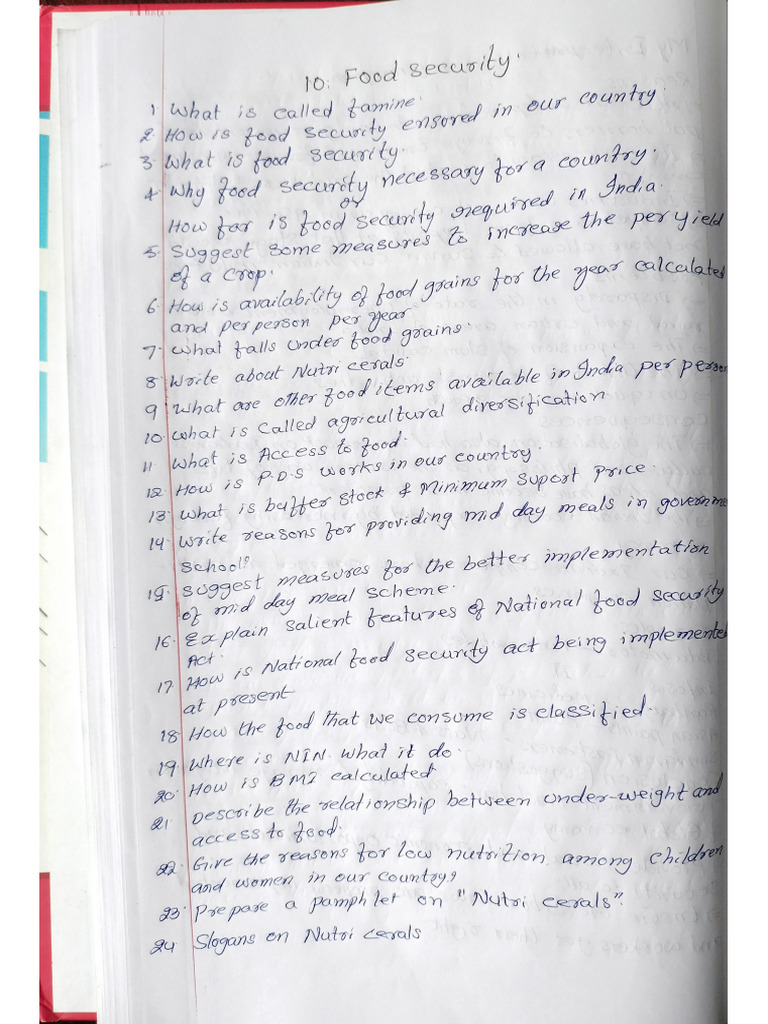 10. Food security.
1. What is called famine.
2. How is food security ensored in our country.
3. What is food security.
4. Why food security necessary for a country.
or
How far is food security required in India.
5. Suggest some measures to increase the per yield
of a crop.
6. How is availability of food grains for the year calculated
and per person per year
7. What falls under food grains.
8. Write about Nutri cerals.
9. What are other food items available in India per person
10. What is called agricultural diversification
11. What is Access to food.
12. How is P.D.S works in our country.
13. What is buffer stock & Minimum Suport Price.
14. Write reasons for providing mid day meals in governme
school?
15. suggest measures for the better implementation
of mid day meal scheme.
16. Explain salient features of National food security
Act.
17. How is National food security act being implemente
at present
18. How the food that we consume is classified.
19. Where is NIN. What it do.
20. How is BMI calculated
21. Describe the relationship between under-weight and
access to food.
22. Give the reasons for low nutrition among children
and women in our country?
23. Prepare a pamphlet on "Nutri cerals".
24. Slogans on Nutri cerals